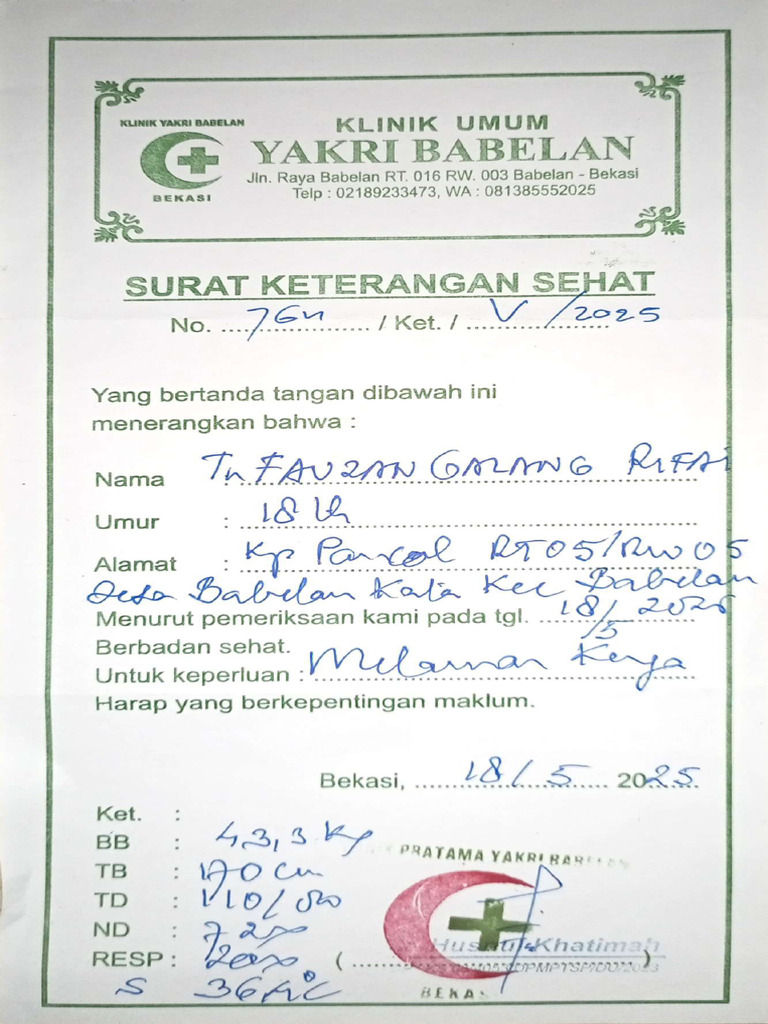 KLINIK YAKRI BABELAN
BEKASI
KLINIK UMUM
YAKRI BABELAN
Jln. Raya Babelan RT. 016 RW. 003 Babelan - Bekasi
Telp : 02189233473, WA : 081385552025
SURAT KETERANGAN SEHAT
No. ............ / Ket. / V / 2025
Yang bertanda tangan dibawah ini
menerangkan bahwa :
Nama Tn FAUZAN GALANG RIFAI
Umur : 18 th
Alamat : Kp Pancol RT05/RW05
Desa Babelan Kota Kec Babelan
Menurut pemeriksaan kami pada tgl. 18/5 2025
Berbadan sehat.
Untuk keperluan : Melamar Kerja
Harap yang berkepentingan maklum.
Bekasi, 18/5 2025
Ket. :
BB : 43,3 Kg
TB : 170 cm
TD : 110/80
ND : 72x
RESP : 20x
S 36,
PRATAMA YAKRI BABELAN
Husnul Khatimah
BEKAS